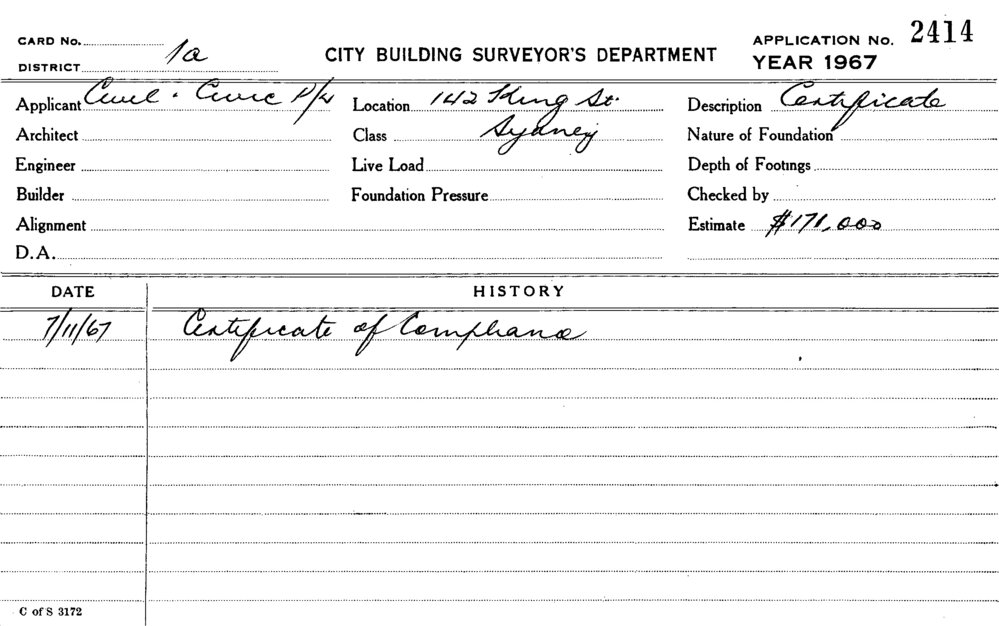 CARD No.
DISTRICT 1a
CITY BUILDING SURVEYOR'S DEPARTMENT
APPLICATION No. 2414
YEAR 1967
Applicant Civil & Civic P/L
Location 142 King St.
Description Certificate
Architect
Class Sydney
Nature of Foundation
Engineer
Live Load
Depth of Footings
Builder
Foundation Pressure
Checked by
Alignment
Estimate $171,000
D.A.
DATE HISTORY
7/11/67 Certificate of Compliance
C of S 3172